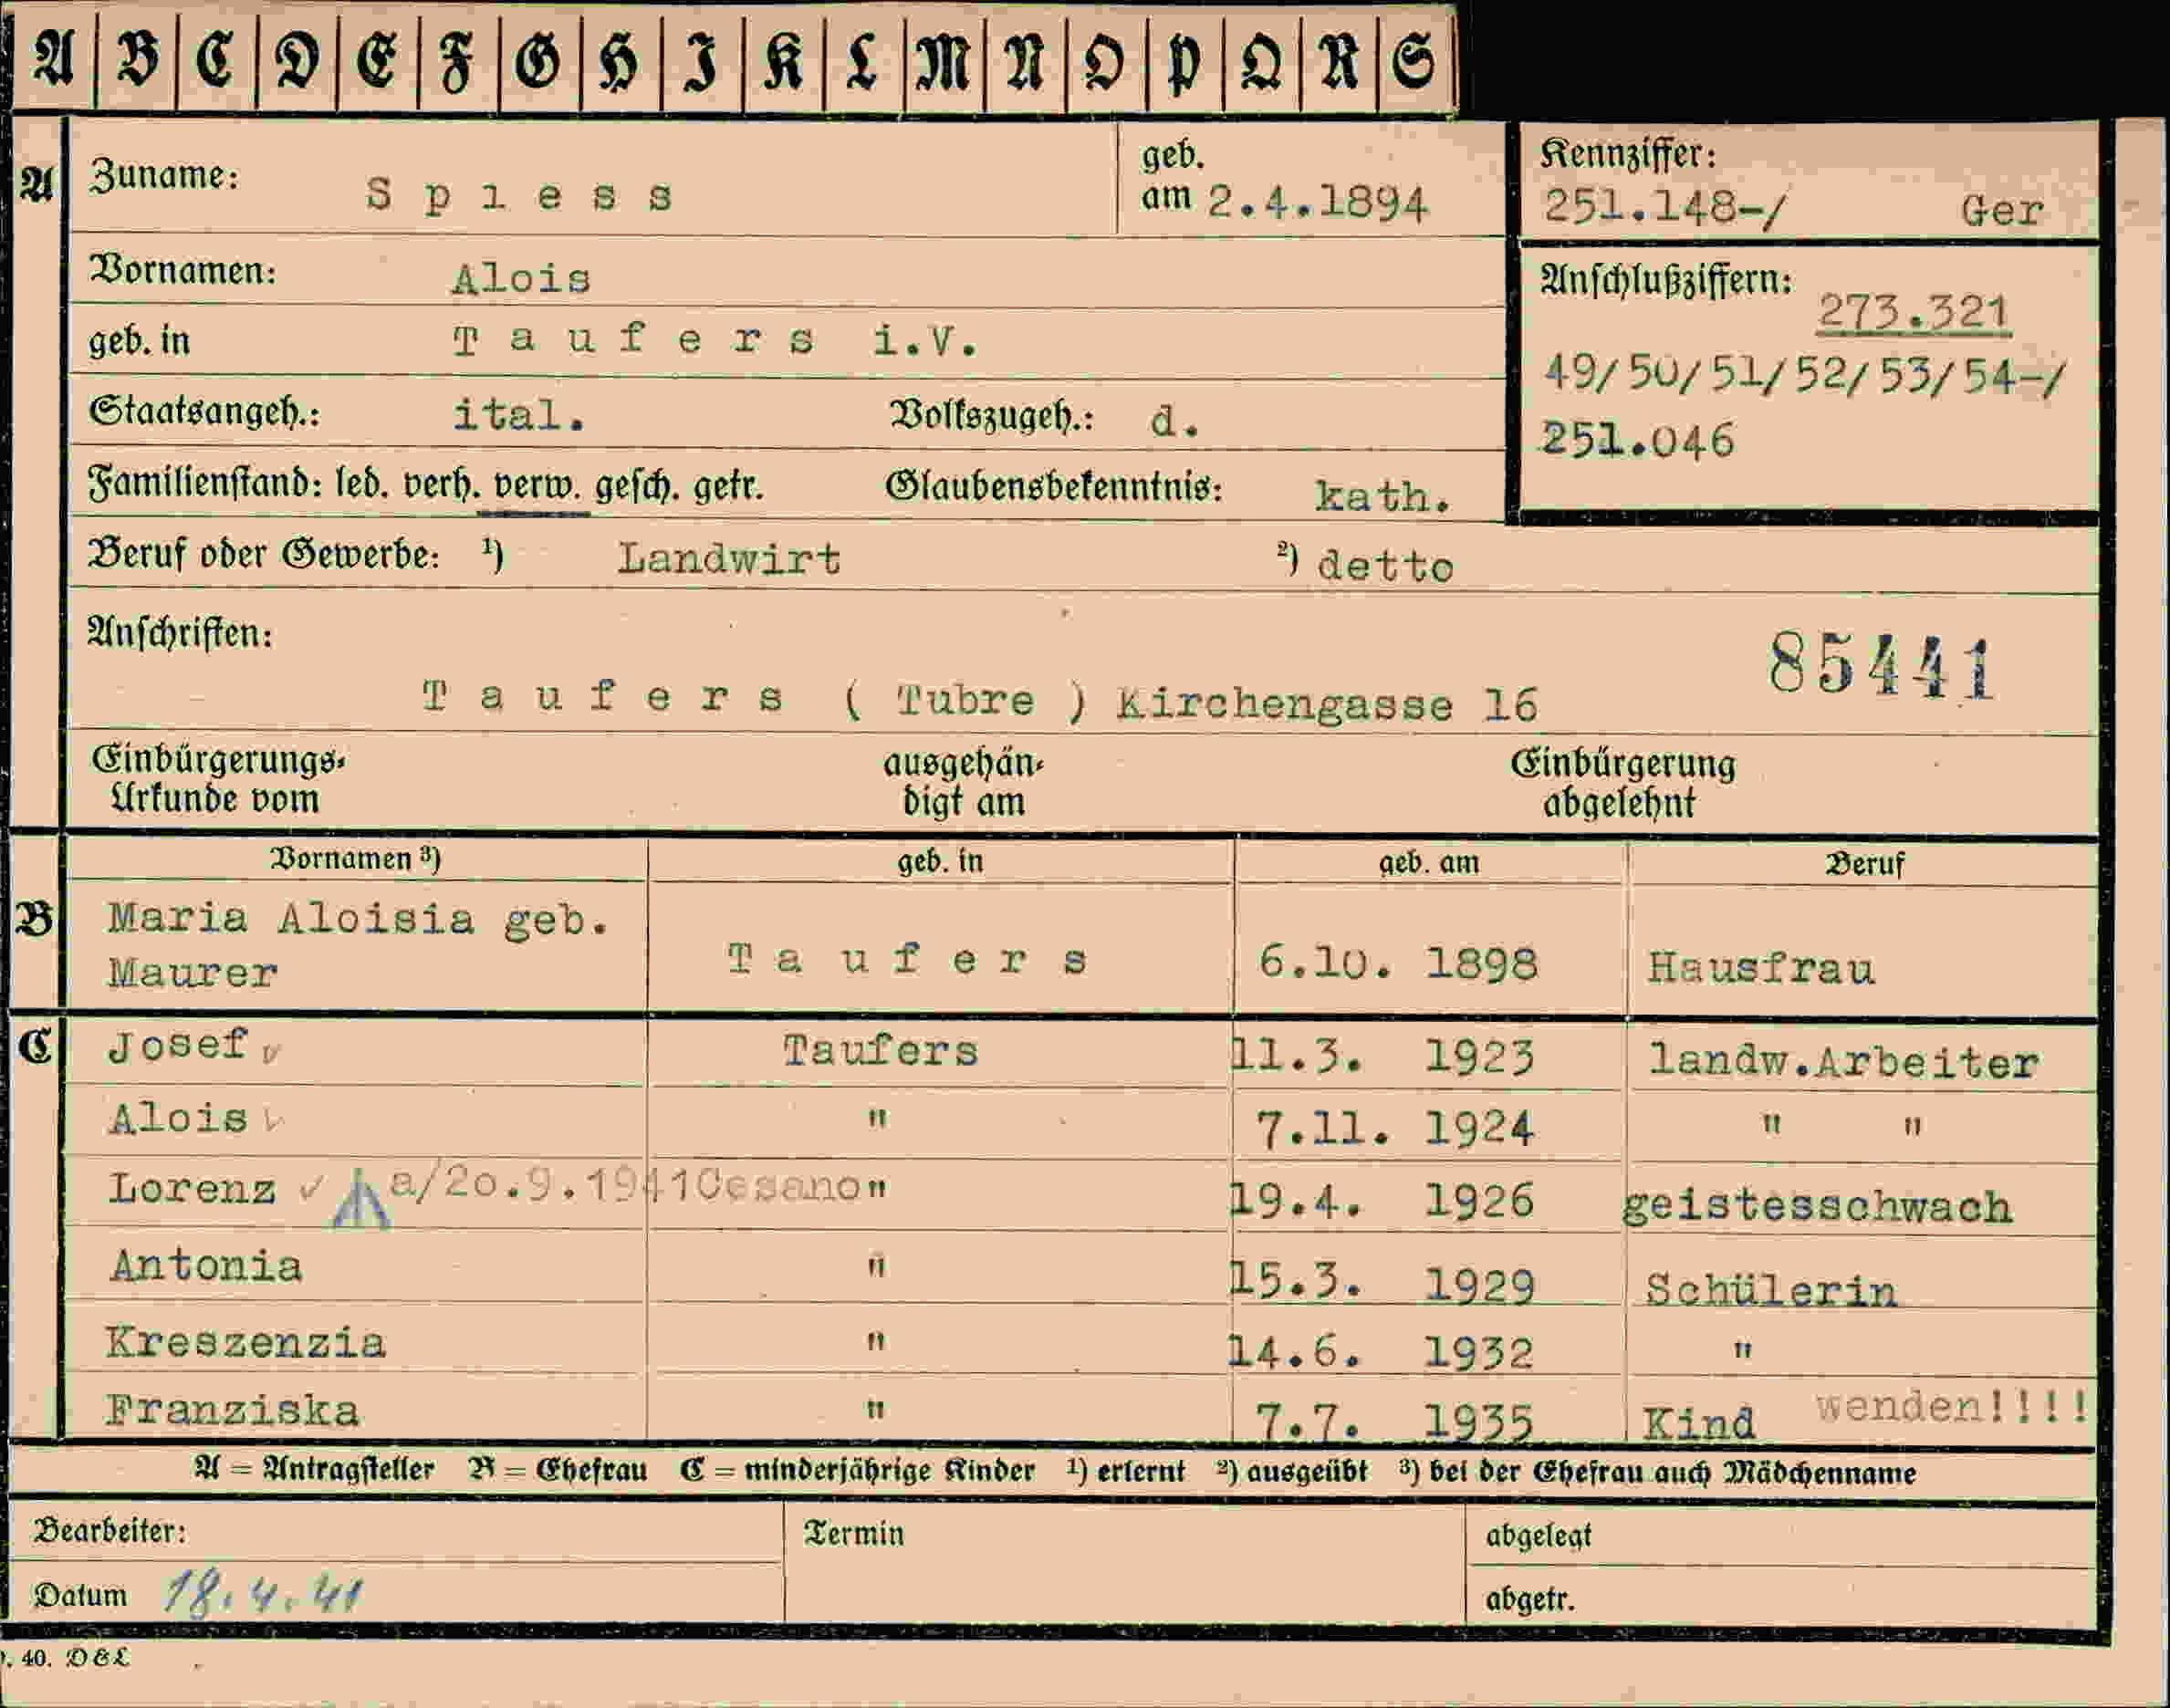 A B C D E F G H I K L M N O P Q R S
A Zuname: S p i e s s geb. am 2.4.1894
Kennziffer: 251.148-/ Ger
Vornamen: Alois
Anschlußziffern: 273.321
49/50/51/52/53/54-/
251.046
geb. in T a u f e r s i.V.
Staatsangeh.: ital. Volkszugeh.: d.
Familienstand: led. verh. verw. gesch. getr. Glaubensbekenntnis: kath.
Beruf oder Gewerbe: ¹) Landwirt ²) detto
Anschriften:
85441
T a u f e r s ( Tubre ) Kirchengasse 16
Einbürgerungs- ausgehän- Einbürgerung
Urkunde vom digt am abgelehnt
Vornamen ³) geb. in geb. am Beruf
B Maria Aloisia geb.
Maurer T a u f e r s 6.10. 1898 Hausfrau
C Josef Taufers 11.3. 1923 landw.Arbeiter
Alois " 7.11. 1924 " "
Lorenz a/20.9.1941Cesano" 19.4. 1926 geistesschwach
Antonia " 15.3. 1929 Schülerin
Kreszenzia " 14.6. 1932 "
Franziska " 7.7. 1935 Kind wenden!!!!
A = Antragsteller B = Ehefrau C = minderjährige Kinder ¹) erlernt ²) ausgeübt ³) bei der Ehefrau auch Mädchenname
Bearbeiter: Termin abgelegt
Datum 18.4.41 abgetr.
. 40. D&L